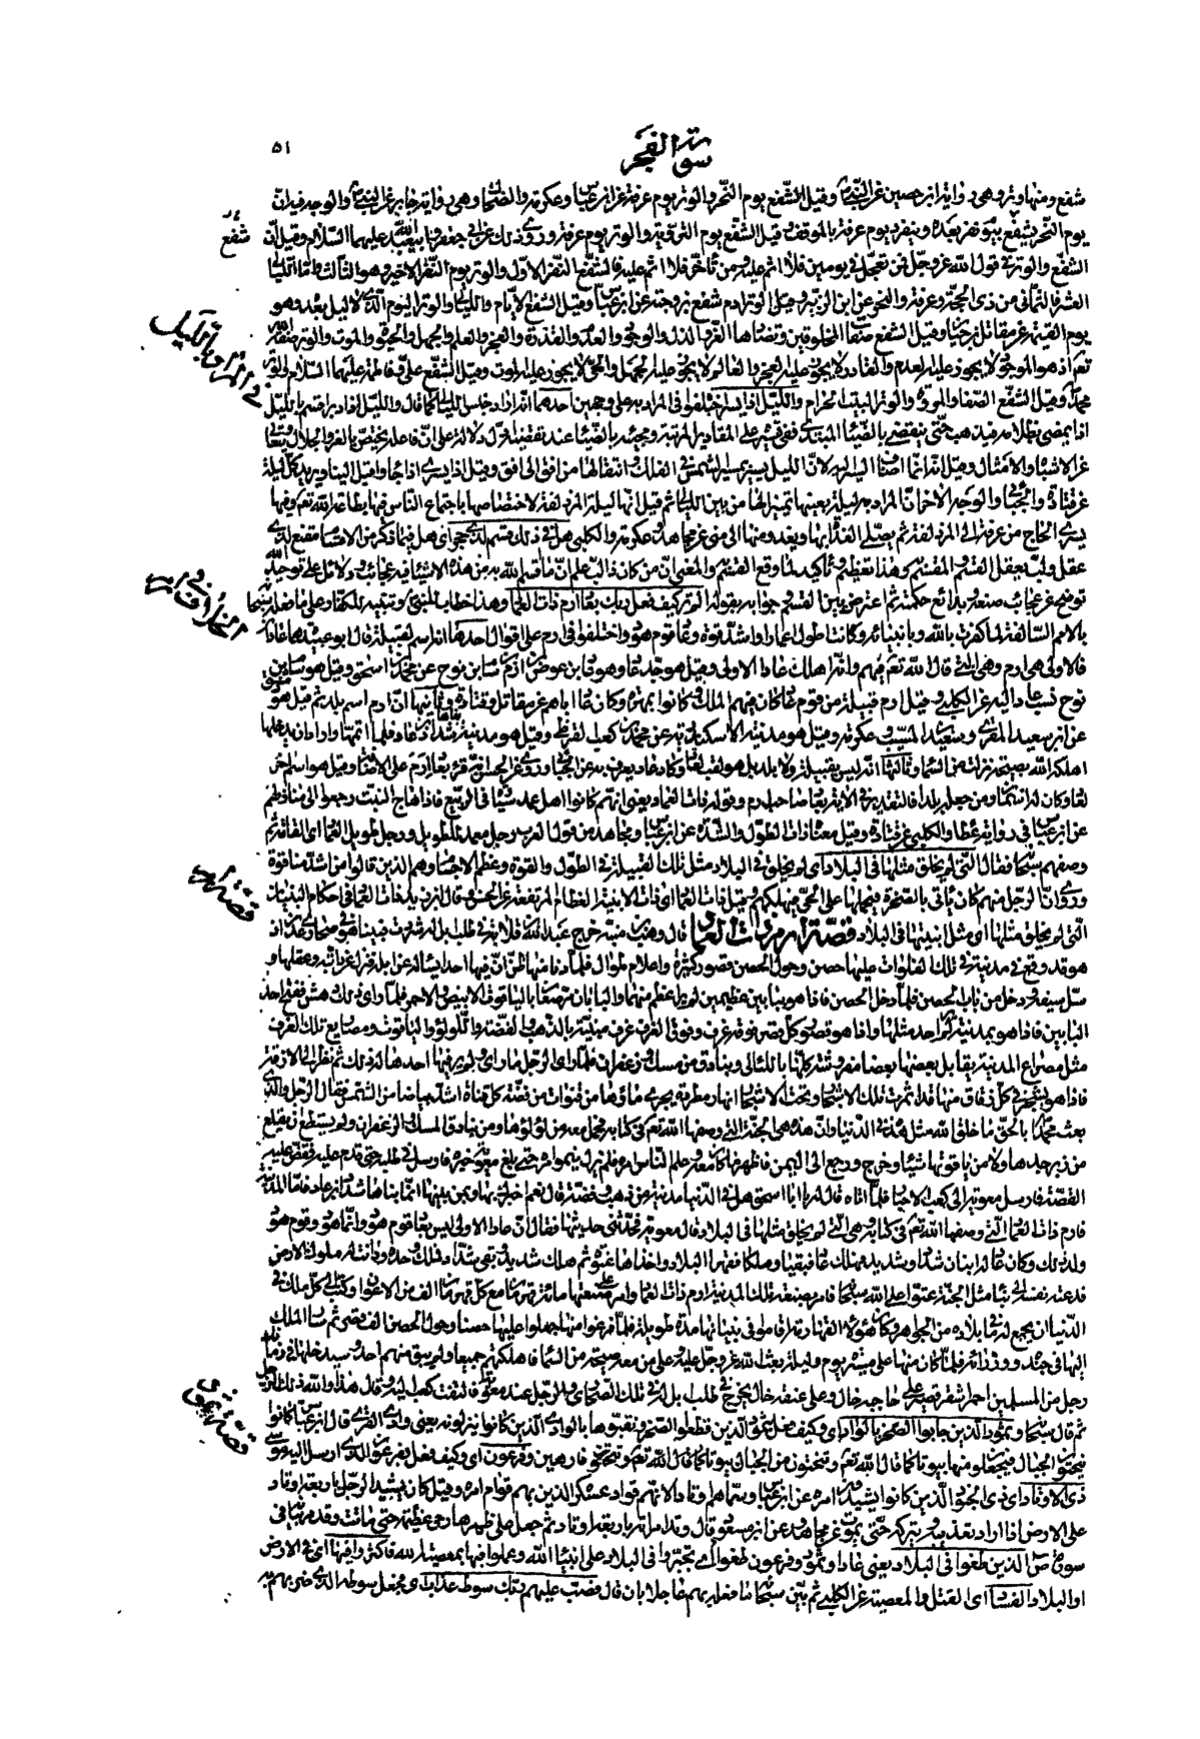 سورة الفجر
٥١
شفع ومنها وتر وهي رواية ابن حصين عن النبي وقيل الشفع يوم النحر والوتر يوم عرفة عن ابن عباس وعكرمة والضحاك وهي رواية جابر عن النبي والوجه فيه ان
يوم النحر يشفع بيوم نفر بعده وينفرد يوم عرفة بالموقف وقيل الشفع يوم التروية والوتر يوم عرفة وروى ذلك عن ابي جعفر وابي عبد الله عليهما السلام وقيل ان
شفع
الشفع والوتر في قول الله عز وجل فمن تعجل في يومين فلا اثم عليه ومن تأخر فلا اثم عليه فالشفع النفر الاول والوتر يوم النفر الاخير وهو الثالث واما الليالي
العشر فالثماني من ذى الحجة وعرفة والنحر عن ابن الزبير وقيل الوتر ادم شفع بزوجته عن ابن عباس وقيل الشفع الايام والليالي والوتر اليوم الذى لا ليل بعده وهو
يوم القيمة عن مقاتل بن حيان وقيل الشفع صفات المخلوقين وتضادها العز والذل والوجود والعدم والقدرة والعجز والعلم والجهل والحيوة والموت والوتر صفات الله
تعم اذ هو الموجود لا يجوز عليه العدم والقادر لا يجوز عليه العجز والعالم لا يجوز عليه الجهل والحي لا يجوز عليه الموت وقيل الشفع علي وفاطمة عليهما السلام والوتر
محمد وقيل الشفع الصفا والمروة والوتر البيت الحرام والليل اذا يسر اختلفوا في المراد به على وجهين احدهما انه اراد جنس الليالي كما قال والليل اذا دبر اقسم بالليل
اذا يمضى بظلامه فيذهب حتى ينقضى بالضياء المبتدئ ففي سيره على المقادير المرتبة ومجيئه بالضياء عند تقضيه ادل دلالة على ان فاعله يختص بالعز والجلال ويتعالى
عن الاشباه والامثال وقيل انه انما اضاف السير اليه لان الليل يسير بمسير الشمس في الفلك وانتقالها من افق الى افق وقيل اذا يسرى اذا جاء واقبل الينا ويريد كل ليلة
عن قتادة والجبائي والوجه الاخر ان المراد به ليلة بعينها تمييزا لها من بين الليالي ثم قيل انها ليلة المزدلفة لاختصاصها باجتماع الناس فيها بطاعة الله تعم وفيها
يسرى الحاج من عرفة الى المزدلفة ثم يصلى الغداة بها ويغدو منها الى منى عن مجاهد وعكرمة والكلبي هل في ذلك قسم لذى حجر اى هل فيما ذكر من الاقسام مقنع لذى
عقل ولب يعقل القسم والمقسم به وهذا تعظيم وتأكيد لما وقع القسم به والمعنى ان من كان ذا لب علم ان ما اقسم الله به من هذه الاشياء فيه عجائب ودلائل على توحيد الله
توضح عن عجائب صنعه وبدائع حكمته ثم اعترض بين القسم وجوابه بقوله الم تر كيف فعل ربك بعاد ارم ذات العماد وهذا خطاب للنبي وتنبيه للكفار على ما فعله سبحانه
بالامم السالفة لما كفرت بالله وبانبيائه وكانت اطول اعمارا واشد قوة وعاد قوم هود واختلفوا في ارم على اقوال احدها انه اسم لقبيلة قال ابو عبيدة هما عادان
فالاولى هي ارم وهي التي قال الله تعم فيهم وانه اهلك عادا الاولى وقيل هو جد عاد وهو عاد بن عوص بن ارم بن سام بن نوح عن محمد بن اسحق وقيل هو سام بن
نوح نسب عاد اليه عن الكلبي وقيل ارم قبيلة من قوم عاد كان فيهم الملك وكانوا بمهرة وكان عاد اباهم عن مقاتل وقتادة وثانيها ان ارم اسم بلد ثم قيل هو دمشق
عن ابن سعيد المقرى وسعيد بن المسيب وعكرمة وقيل هو مدينة الاسكندرية عن محمد بن كعب القرظي وقيل هو مدينة بناها شداد بن عاد فلما اتمها واراد ان يدخلها
اهلكه الله بصيحة نزلت من السماء وثالثها انه ليس بقبيلة ولا بلد بل هو لقب لعاد وكان عاد يعرف به عن الجبائي وروى عن الحسن انه قرأ بعاد ارم على الاضافة وقيل هو اسم اخر
لعاد وكان له اسمان ومن جعله بلدا فالتقدير في الاية بعاد صاحب ارم وقوله ذات العماد يعنى انهم كانوا اهل عمد سيارة في الربيع فاذا هاج النبت رجعوا الى منازلهم
عن ابن عباس في رواية عطاء والكلبي عن قتادة وقيل معناه ذات الطول والشدة عن ابن عباس ومجاهد من قول العرب رجل معمد للطويل ورجل طويل العماد اى القامة ثم
وصفهم سبحانه فقال التي لم يخلق مثلها في البلاد اى لم يخلق في البلاد مثل تلك القبيلة في الطول والقوة وعظم الاجسام وهم الذين قالوا من اشد منا قوة
وروى ان الرجل منهم كان يأتي بالصخرة فيحملها على الحي فيهلكهم وقيل ذات العماد اى ذات الابنية العظام المرتفعة عن الحسن وقال ابن زيد ذات العماد في احكام البنيان
التى لم يخلق مثلها اى مثل ابنيتها في البلاد قصة ارم ذات العماد قال وهب بن منبه خرج عبد الله بن قلابة في طلب ابل له شردت فبينا هو في صحارى عدن اذ
هو قد وقع في مدينة في تلك الفلوات عليها حصن وحول الحصن قصور كثيرة واعلام طوال فلما دنا منها ظن ان فيها احدا يسأله عن ابله فنزل عن دابته وعقلها و
سل سيفه ودخل من باب الحصن فلما دخل الحصن فاذا هو ببابين عظيمين لم ير اعظم منهما والبابان مرصعان بالياقوت الابيض والاحمر فلما رأى ذلك دهش ففتح احد
البابين فاذا هو بمدينة لم ير احد مثلها واذا هو قصور كل قصر فوقه غرف وفوق الغرف غرف مبنية بالذهب والفضة واللؤلؤ والياقوت ومصاريع تلك الغرف
مثل مصراع المدينة يقابل بعضها بعضا مفروشة كلها باللئالي وبنادق من مسك وزعفران فلما رأى الرجل ما رأى ولم ير فيها احدا هاله ذلك ثم نظر الى الازقة
فاذا هو بشجر في كل زقاق منها قد اثمرت تلك الاشجار وتحت الاشجار انهار مطردة يجرى ماؤها من قنوات من فضة كل قناة اشد بياضا من الشمس فقال الرجل والذى
بعث محمدا بالحق ما خلق الله مثل هذه في الدنيا وان هذه هي الجنة التي وصفها الله تعم في كتابه فحمل معه من لؤلؤها ومن بنادق المسك والزعفران ولم يستطع ان يقلع
من زبرجدها ولا من ياقوتها شيئا وخرج ورجع الى اليمن فاظهر ما كان معه وعلم الناس امره فلم يزل ينمو امره حتى بلغ معوية خبره فارسل في طلبه حتى قدم عليه فقص عليه
القصة فارسل معوية الى كعب الاحبار فلما اتاه قال له يا ابا اسحق هل في الدنيا مدينة من ذهب وفضة قال نعم اخبرك بها وبمن بناها انما بناها شداد بن عاد فاما المدينة
فارم ذات العماد التي وصفها الله تعم في كتابه وهي التي لم يخلق مثلها في البلاد قال معوية فحدثني حديثها فقال ان عادا الاولى ليس بعاد قوم هود وانما هود وقوم هود
ولد ذلك وكان عاد له ابنان شداد وشديد فهلك عاد فبقيا وملكا فقهرا البلاد واخذاها عنوة ثم هلك شديد وبقى شداد فملك وحده ودانت له ملوك الارض
فدعته نفسه الى بناء مثل الجنة عتوا على الله سبحانه فامر بصنعة تلك المدينة ارم ذات العماد وامر على صنعتها مائة قهرمان مع كل قهرمان الف من الاعوان وكتب الى كل ملك في
الدنيا ان يجمع له ما في بلاده من الجواهر وكان هؤلاء القهارمة اقاموا في بنيانها مدة طويلة فلما فرغوا منها جعلوا عليها حصنا وحول الحصن الف قصر ثم سار الملك
اليها في جنده ووزرائه فلما كان منها على مسيرة يوم وليلة بعث الله عز وجل عليه وعلى من معه صيحة من السماء فاهلكتهم جميعا ولم يبق منهم احد وسيدخلها في زمانك
رجل من المسلمين احمر اشقر قصير على حاجبه خال وعلى عنقه خال يخرج في طلب ابل له في تلك الصحارى والرجل عند معوية فالتفت كعب اليه وقال هذا والله ذلك الرجل
ثم قال سبحانه وثمود الذين جابوا الصخر بالواد اى وكيف فعل بثمود الذين قطعوا الصخر ونقبوها بالوادى الذين كانوا ينزلونه يعنى وادى القرى قال ابن عباس كانوا
ينحتون الجبال فيجعلون منها بيوتا كما قال الله تعم وتنحتون من الجبال بيوتا فارهين وفرعون اى وكيف فعل بفرعون الذى ارسل اليه موسى
ذى الاوتاد اى ذى الجنود الذين كانوا يشيدون امره عن ابن عباس وسماهم اوتادا لانهم قواد عسكره الذين بهم قوام امره وقيل كان يشد الرجل باربعة اوتاد
على الارض اذا اراد تعذيبه ويتركه حتى يموت عن مجاهد وعن ابن مسعود قال وتد امرأته باربعة اوتاد ثم جعل على ظهرها رحى عظيمة حتى ماتت وقد مر بيانه في
سورة ص الذين طغوا في البلاد يعنى عادا وثمود وفرعون طغوا اى تجبروا في البلاد على انبياء الله وعملوا فيها بمعصية الله فاكثروا فيها اى في الارض
او البلاد الفساد اى القتل والمعصية عن الكلبي ثم بين سبحانه ما فعله بهم عاجلا بان قال فصب عليهم ربك سوط عذاب اى فجعل سوطه الذى ضربهم به
قصة ارم
قصة ثمود